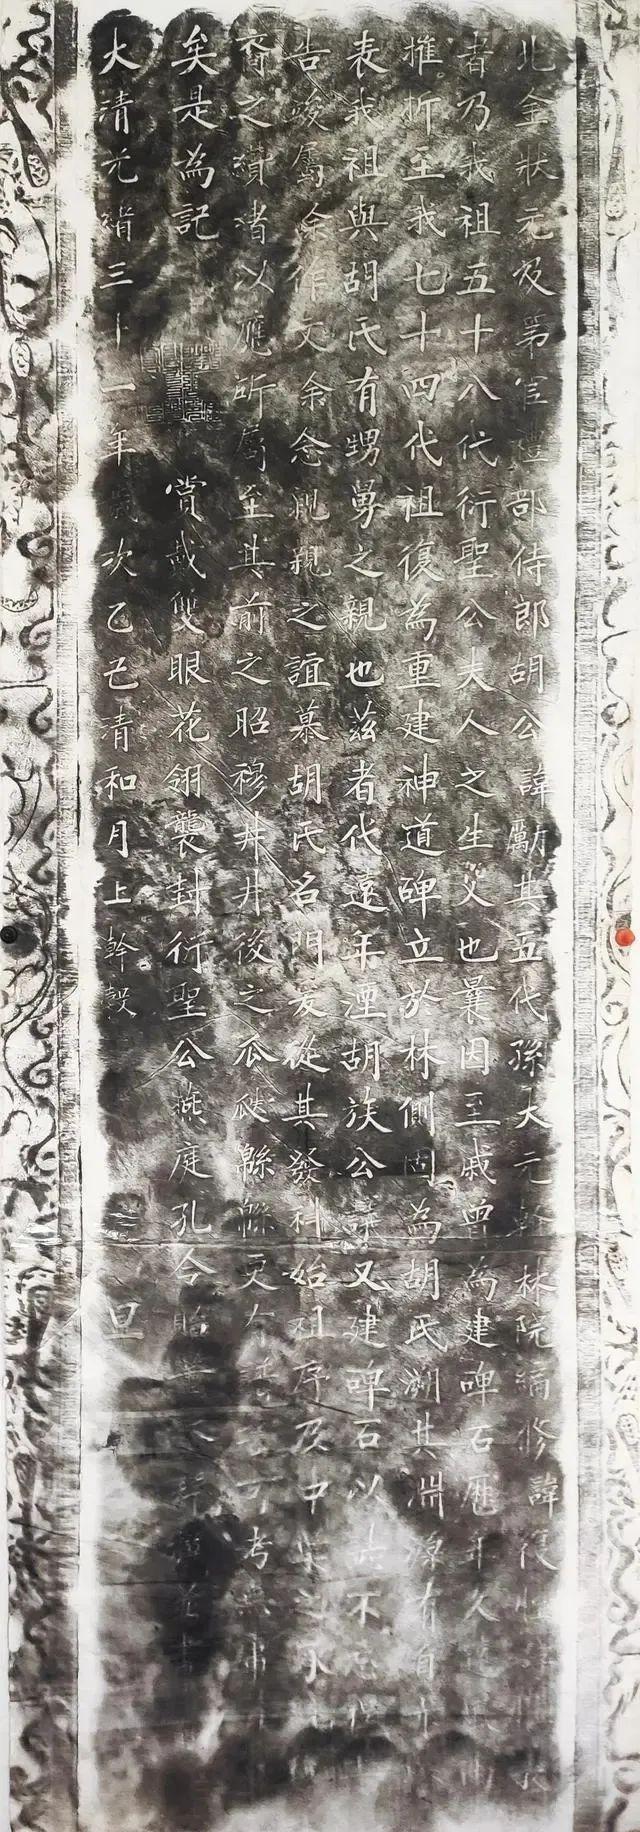 北金狀元及第官禮部侍郎胡公諱勵其五代孫大元翰林院編修諱復性
者乃我祖五十八代衍聖公夫人之生父也曩因至戚曾為建碑石歷年久
摧折至我七十四代祖復為重建神道碑立於林側固為胡氏溯其淵源有自
表我祖與胡氏有甥舅之親也茲者代遠年湮胡族公議又建碑石以共不忘
告竣屬余作文余念親親之誼慕胡氏名門爰從其發科始祖序及中
裔之續渚以應所屬至其前之昭穆井井後之瓜瓞綿綿更有考
矣是為記
賞戴雙眼花翎襲封衍聖公燕庭孔令貽
大清光緒三十一年歲次乙巳清和月上幹穀旦